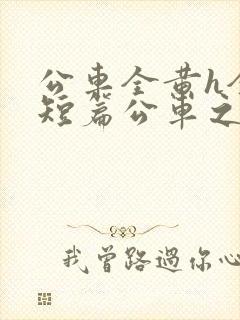 公車全黄h全
短篇公車之
我曾路過你心